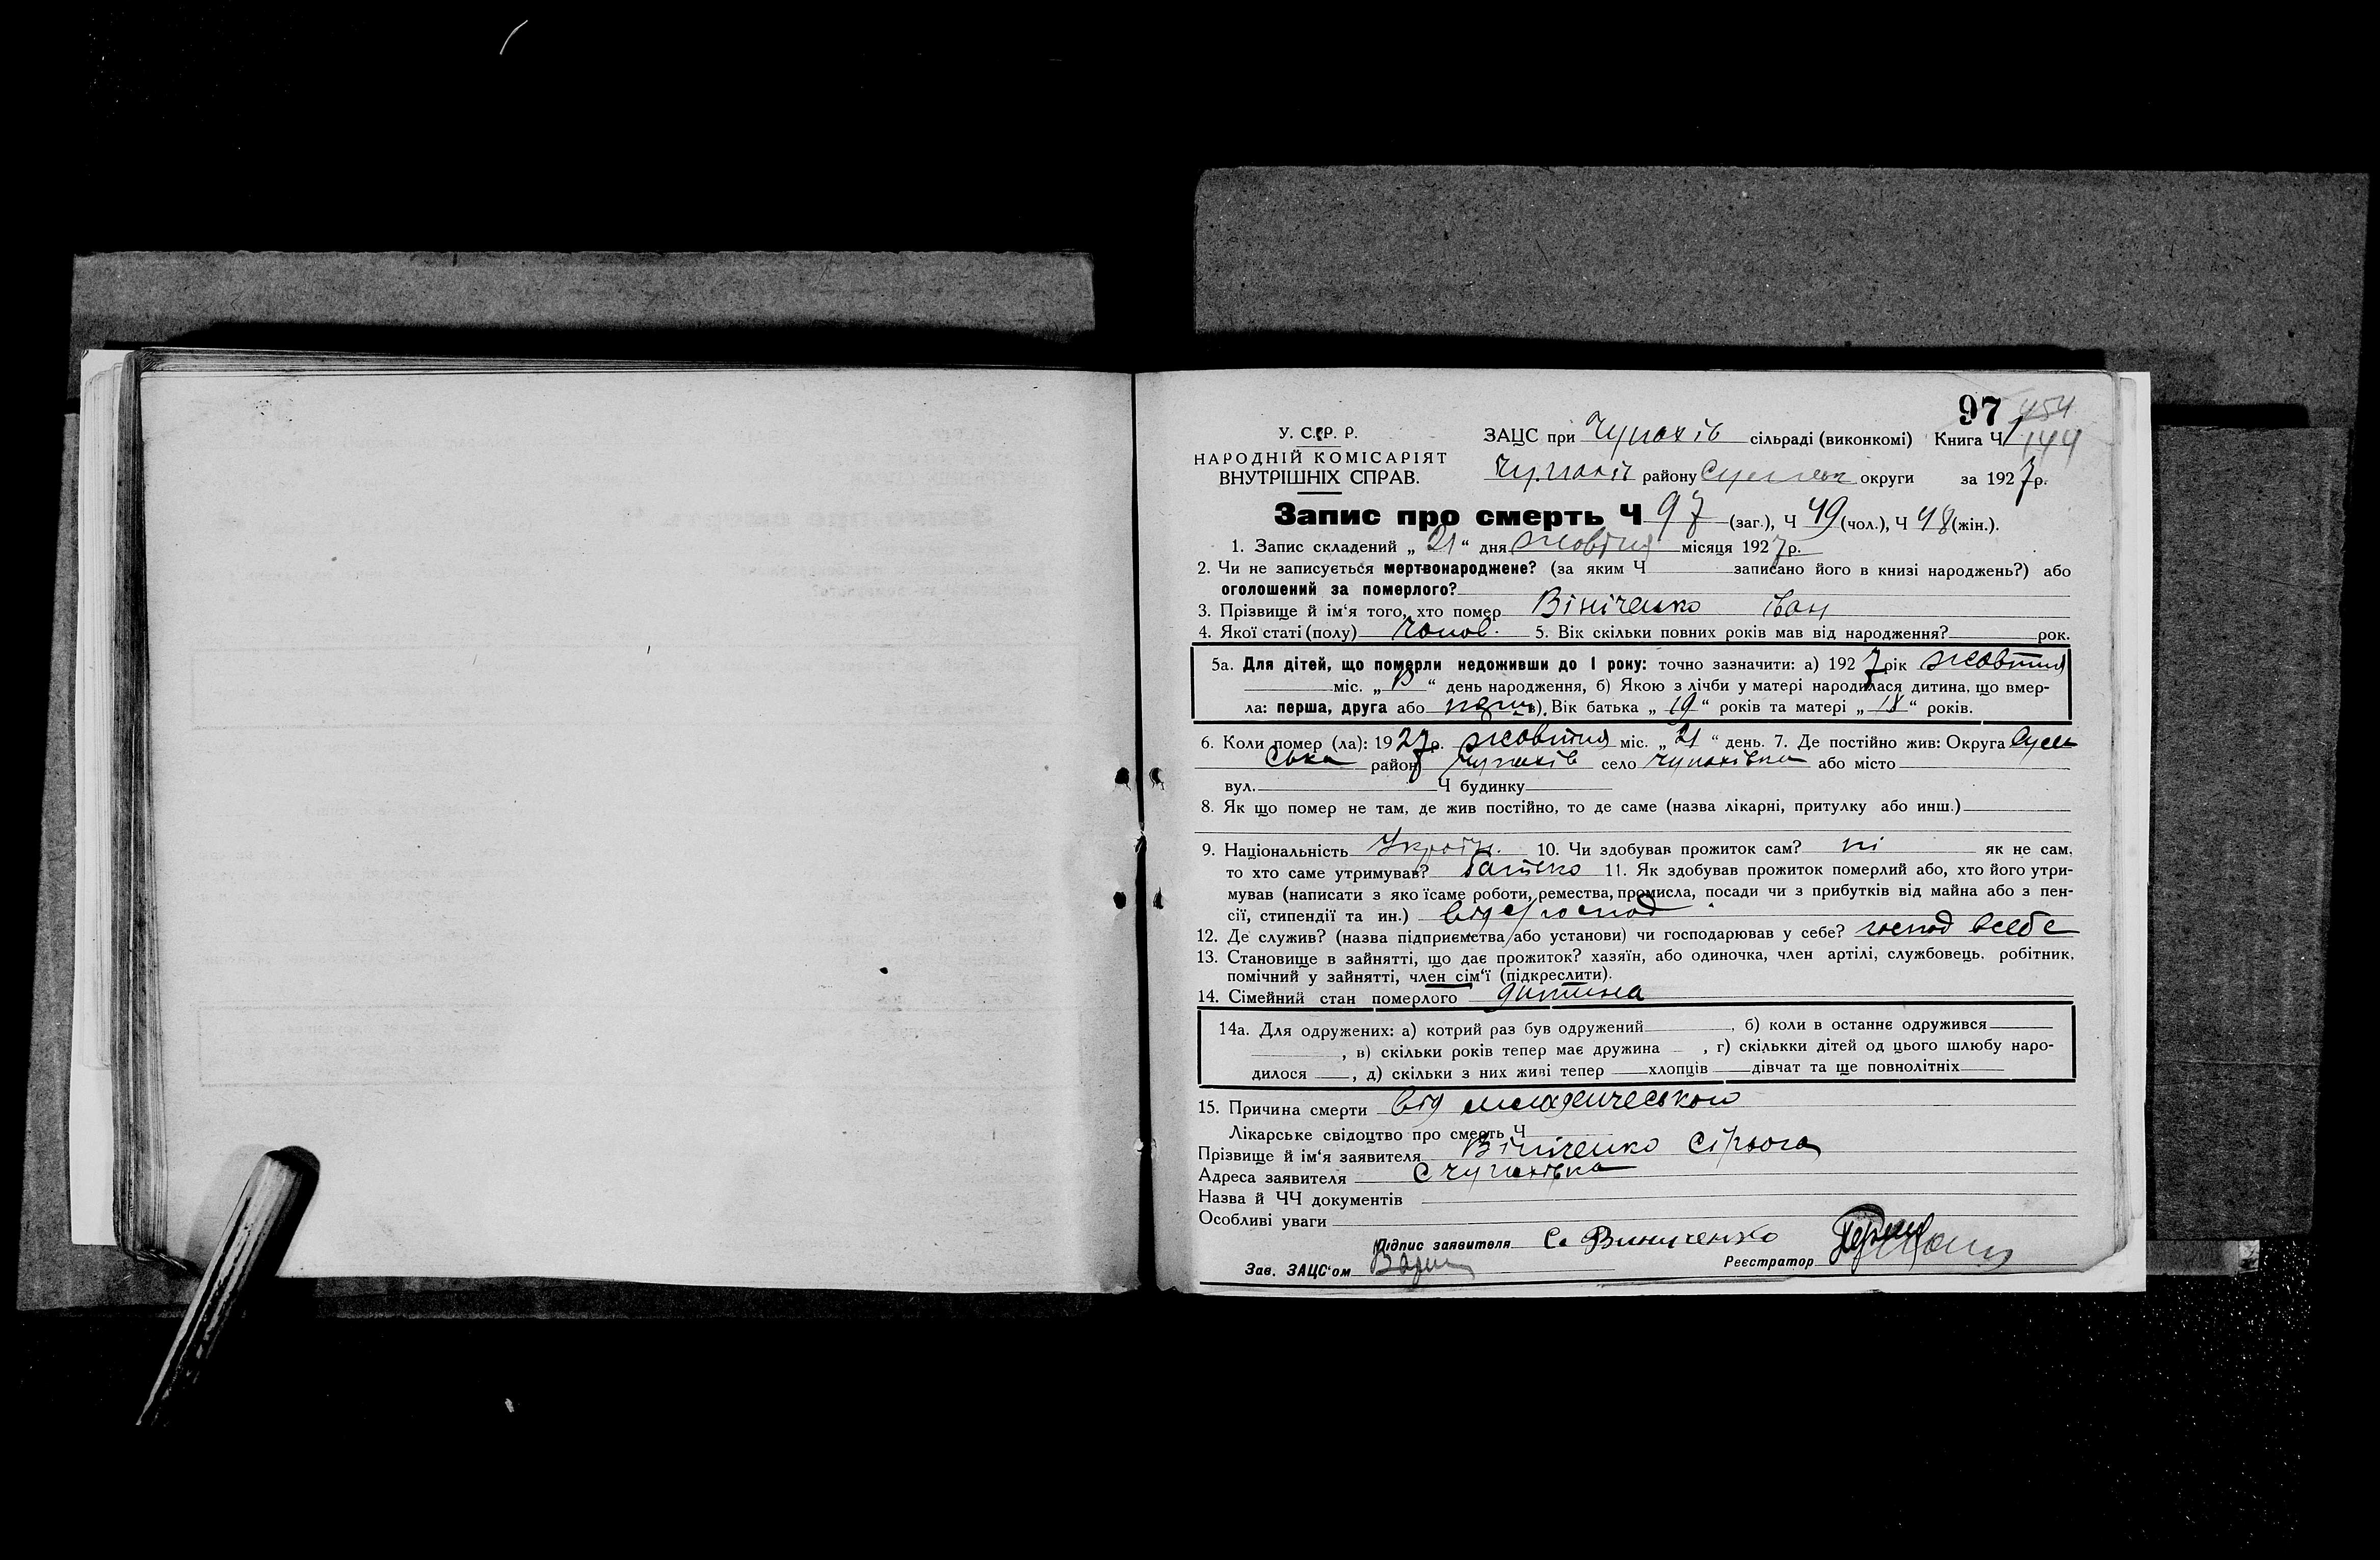 97 454
У. С. Р. Р. ЗАЦС при Чупахів сільраді (виконкомі) Книга Ч 1 144
НАРОДНІЙ КОМІСАРІЯТ
ВНУТРІШНІХ СПРАВ. Чупахів району Сумськ округи за 1927 р.
Запис про смерть Ч 97 (заг.), Ч 49 (чол.), Ч 48 (жін.).
1. Запис складений „ 21 “ дня жовтня місяця 1927 р.
2. Чи не записується мертвонароджене? (за яким Ч записано його в книзі народжень?) або
оголошений за померлого?
3. Прізвище й ім‘я того, хто помер Вініченко Іван
4. Якої статі (полу) чолов. 5. Вік скільки повних років мав від народження? рок.
5а. Для дітей, що померли недоживши до І року: точно зазначити: а) 1927 рік жовтня
міс. „ “ день народження, б) Якою з лічби у матері народилася дитина, що вмер-
ла: перша, друга або перш в). Вік батька „ 19 “ років та матері „ 18 “ років.
6. Коли помер (ла): 1927 р. жовтня міс. „ 21 “ день. 7. Де постійно жив: Округа Сумсь
ська район Чупахів село Чупахівка або місто
вул. Ч будинку
8. Як що помер не там, де жив постійно, то де саме (назва лікарні, притулку або инш.)
9. Національність Україн. 10. Чи здобував прожиток сам? ні як не сам,
то хто саме утримував? батько 11. Як здобував прожиток померлий або, хто його утри-
мував (написати з яко їсаме роботи, ремества, промисла, посади чи з прибутків від майна або з пен-
сії, стипендії та ин.) від с/господ
12. Де служив? (назва підприємства/або установи) чи господарював у себе? господ всебе
13. Становище в зайнятті, що дає прожиток? хазяїн, або одиночка, член артілі, службовець, робітник,
помічний у зайнятті, член сім‘ї (підкреслити).
14. Сімейний стан померлого дитина
14а. Для одружених: а) котрий раз був одружений , б) коли в останнє одружився
, в) скільки років тепер має дружина , г) скількки дітей од цього шлюбу наро-
дилося , д) скільки з них живі тепер хлопців дівчат та ще повнолітніх
15. Причина смерти від младенчеського
Лікарське свідоцтво про смерть Ч
Прізвище й ім‘я заявителя Вініченко Сірьога
Адреса заявителя с Чупахівка
Назва й ЧЧ документів
Особливі уваги
Підпис заявителя С. Виниченко
Зав. ЗАЦС‘ом Реєстратор